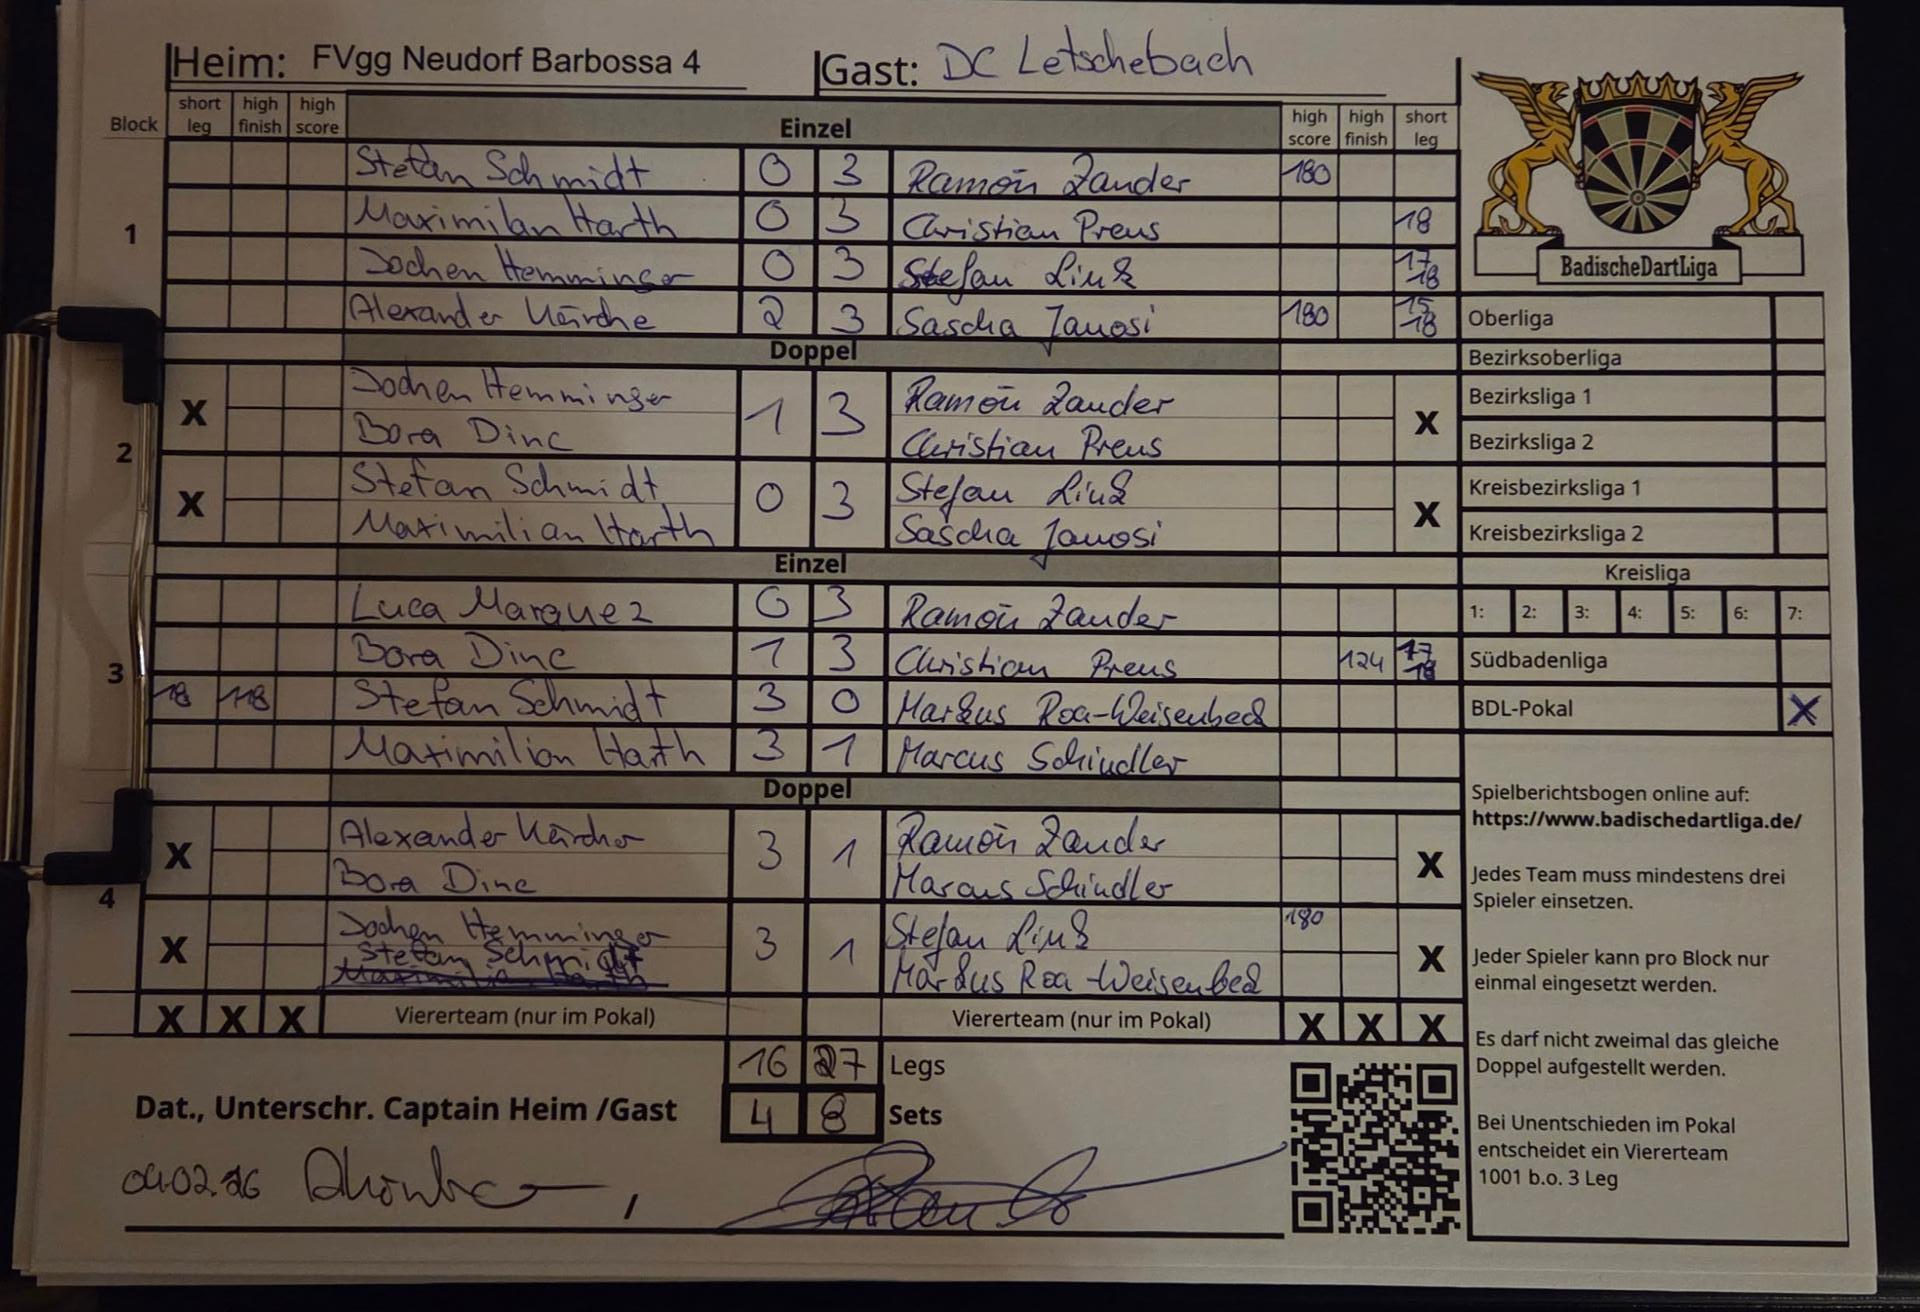 Heim: FVgg Neudorf Barbossa 4 Gast: DC Letschebach
Block short leg high finish high score Einzel high score high finish short leg
1
Stefan Schmidt 0 3 Ramón Zander 180
Maximilan Harth 0 3 Christian Preus 18
Jochen Hemminger 0 3 Stefan Link 17 18
Alexander Kärcher 2 3 Sascha Janosi 180 15 18
Doppel
2
X Jochen Hemminger 1 3 Ramón Zander X
Bora Dinc Christian Preus
X Stefan Schmidt 0 3 Stefan Link X
Maximilian Harth Sascha Janosi
Einzel
3
Luca Marquez 0 3 Ramón Zander
Bora Dinc 1 3 Christian Preus 124 17 18
18 118 Stefan Schmidt 3 0 Markus Roa-Weisenbeck
Maximilian Harth 3 1 Marcus Schindler
Doppel
4
X Alexander Kärcher 3 1 Ramón Zander X
Bora Dinc Marcus Schindler
X Jochen Hemminger 3 1 Stefan Link 180 X
Stefan Schmidt
Maximilian Harth Markus Roa-Weisenbeck
X X X Viererteam (nur im Pokal) Viererteam (nur im Pokal) X X X
16 27 Legs
Dat., Unterschr. Captain Heim /Gast 4 8 Sets
04.02.26
BadischeDartLiga
Oberliga
Bezirksoberliga
Bezirksliga 1
Bezirksliga 2
Kreisbezirksliga 1
Kreisbezirksliga 2
Kreisliga
1: 2: 3: 4: 5: 6: 7:
Südbadenliga
BDL-Pokal X
Spielberichtsbogen online auf:
https://www.badischedartliga.de/
Jedes Team muss mindestens drei
Spieler einsetzen.
Jeder Spieler kann pro Block nur
einmal eingesetzt werden.
Es darf nicht zweimal das gleiche
Doppel aufgestellt werden.
Bei Unentschieden im Pokal
entscheidet ein Viererteam
1001 b.o. 3 Leg